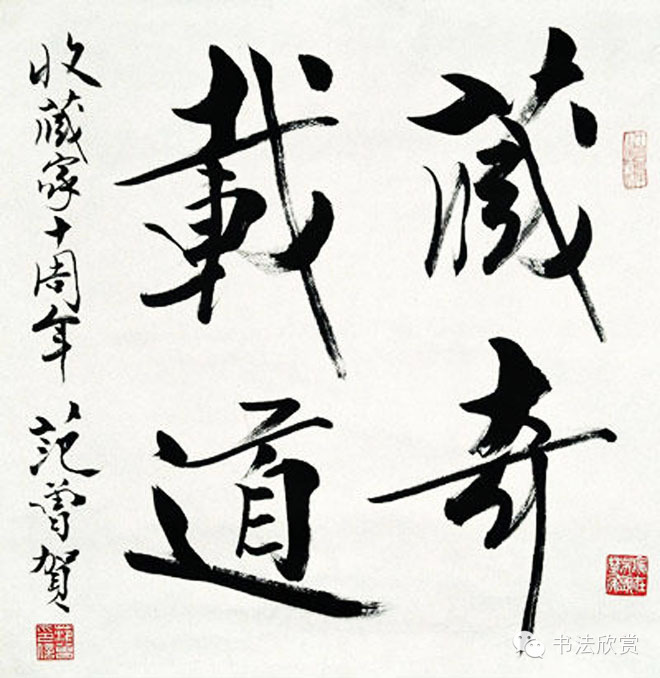 藏奇
載道
收藏家十周年 范曾賀
书法欣赏